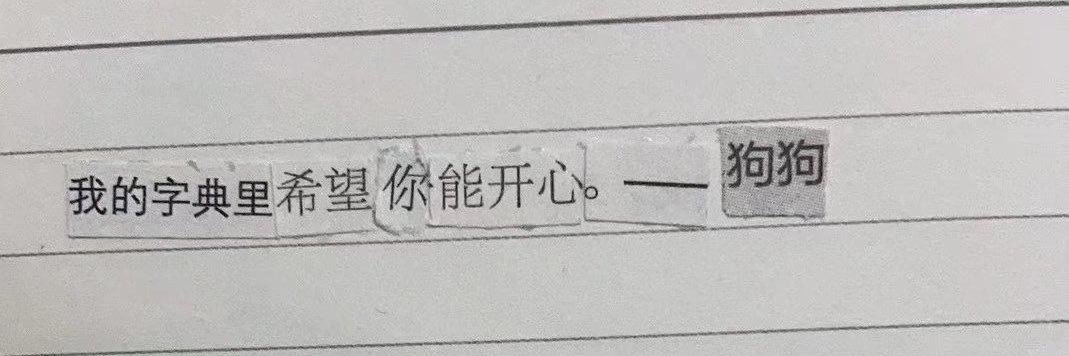 我的字典里希望你能开心。——狗狗